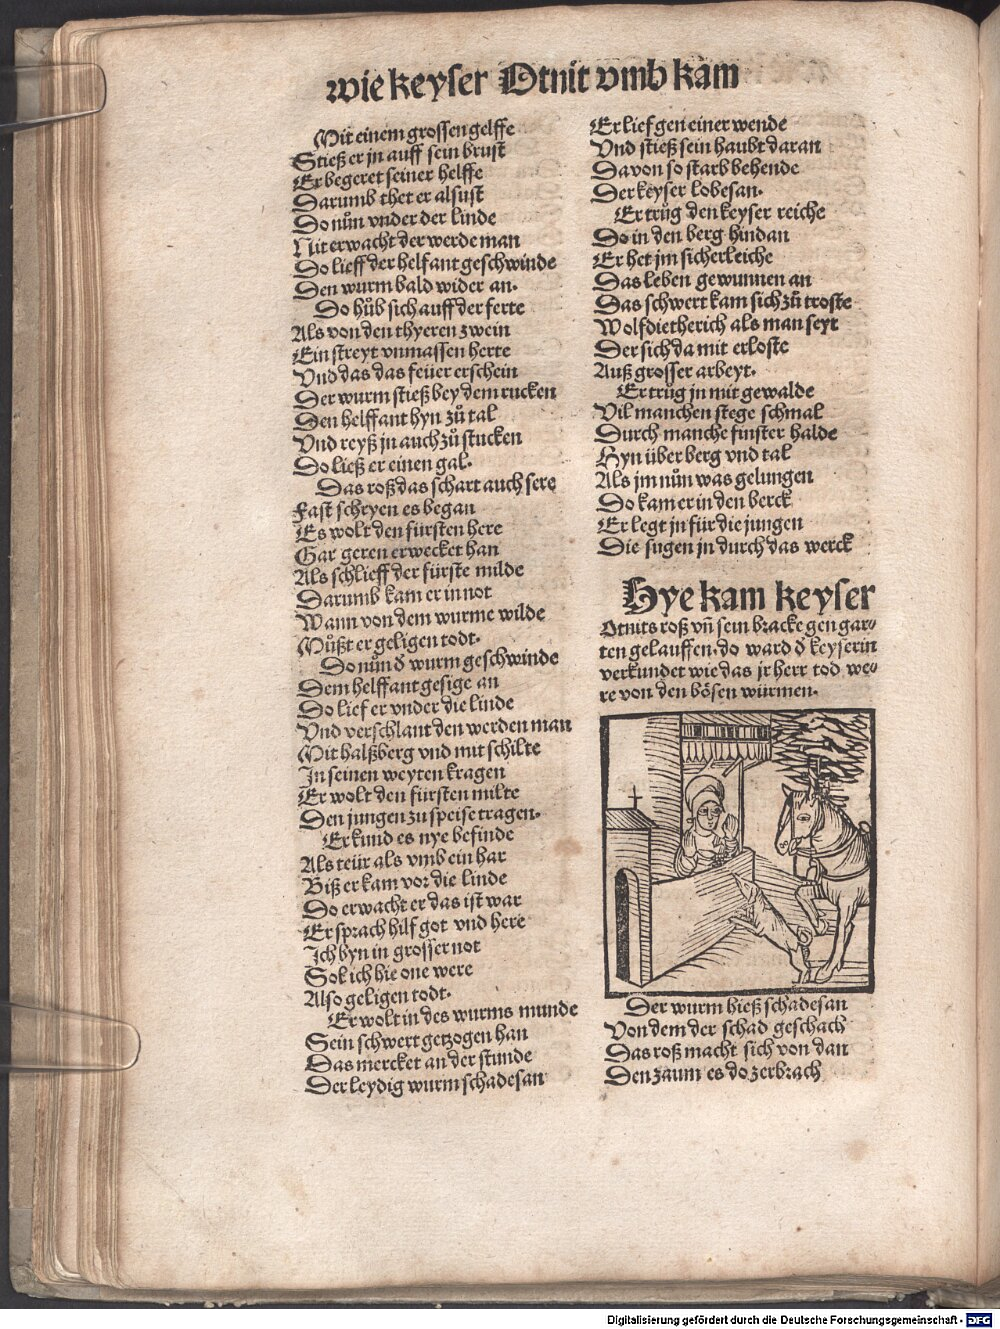 wie keyser Otnit vmb kam
Mit einem grossen gelffe
Stieß er jn auff sein brust
Er begeret seiner helffe
Darumb thet er alsust
Do nůn vnder der linde
Nit erwacht der werde man
Do lieff der helfant geschwinde
Den wurm bald wider an.
Do hůb sich auff der ferte
Als von den thyeren zwein
Ein streyt vnmassen herte
Vnd das das feüer erschein
Der wurm stieß bey dem rucken
Den helffant hyn zů tal
Vnd reyß jn auch zů stucken
Do ließ er einen gal.
Das roß das schart auch sere
Fast schryen es began
Es wolt den fürsten here
Gar geren erwecket han
Als schlieff der fürste milde
Darumb kam er in not
Wann von dem wurme wilde
Můßt er geligen todt.
Do nům d̕ wurm geschwinde
Dem helffant gesige an
Do lief er vnder die linde
Vnd verschlant den werden man
Mit halßberg vnd mit schilte
In seinen weyten kragen
Er wolt den fürsten milte
Den jungen zu speise tragen.
Er kund es nye befinde
Als teür als vmb ein har
Biß er kam vor die linde
Do erwacht er das ist war
Er sprach hilf got vnd here
Ich byn in grosser not
Sol ich hie one were
Also geligen todt.
Er wolt in des wurms munde
Sein schwert getzogen han
Das mercket an der stunde
Der leydig wurm schadesan
Er lief gen einer wende
Vnd stieß sein haubt daran
Davon so starb behende
Der keyser lobesan.
Er trůg den keyser reiche
Do in den berg hindan
Er het jm sicherleiche
Das leben gewunnen an
Das schwert kam sich zů troste
Wolfdietherich als man seyt
Der sich da mit erloste
Auß grosser arbeyt.
Er trůg jn mit gewalde
Vil manchen stege schmal
Durch manche finster halde
Hyn über berg vnd tal
Als jm nům was gelungen
Do kam er in den berck
Er legt jn für die jungen
Die sugen jn durch das werck
Hye kam keyser
Otnits roß vñ sein bracke gen gar⸗
ten gelauffen. do ward d̕ keyserin
verkundet wie das jr herr tod we⸗
re von den bösen würmen.
Der wurm hieß schadesan
Von dem der schad geschach
Das roß macht sich von dan
Den zaum es do zerbrach
Digitalisierung gefördert durch die Deutsche Forschungsgemeinschaft - DFG